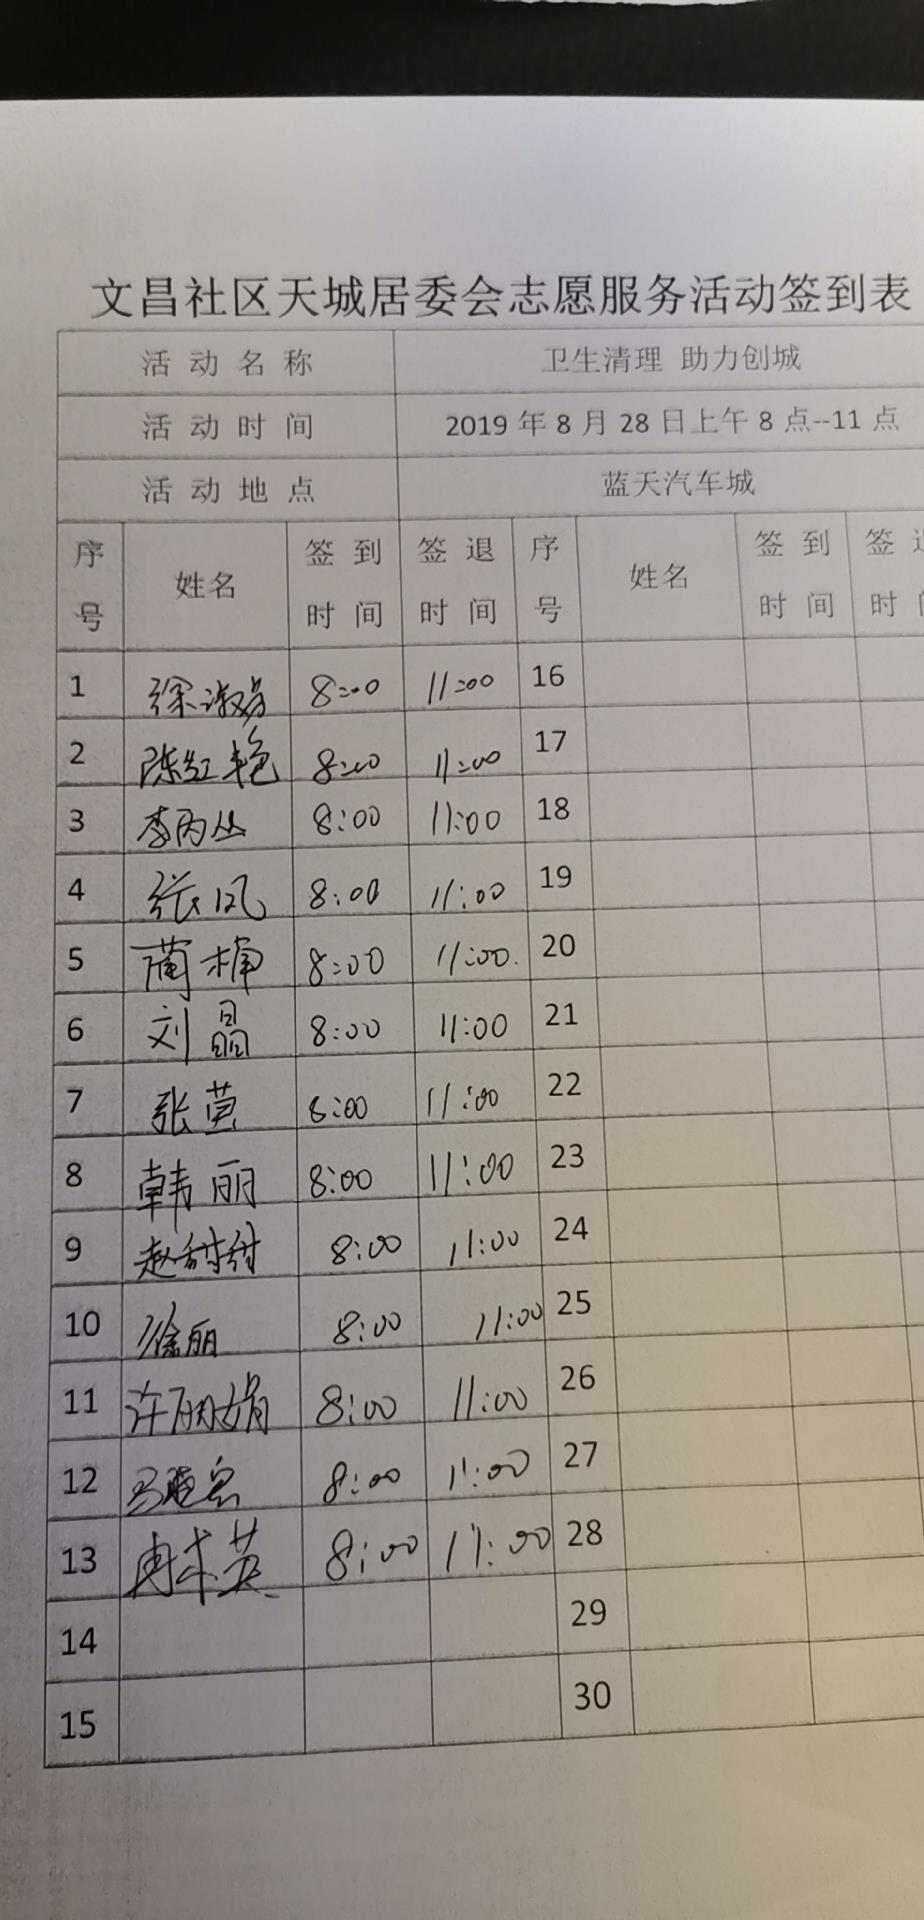 文昌社区天城居委会志愿服务活动签到表
活动名称 卫生清理 助力创城
活动时间 2019年8月28日上午8点--11点
活动地点 蓝天汽车城
序号 姓名 签到时间 签退时间 序号 姓名 签到时间 签退时
1 徐淑娟 8:00 11:00 16
2 陈红艳 8:00 11:00 17
3 李丙丛 8:00 11:00 18
4 张凤 8:00 11:00 19
5 蔺楠 8:00 11:00. 20
6 刘晶 8:00 11:00 21
7 张莹 8:00 11:00 22
8 韩丽 8:00 11:00 23
9 赵甜甜 8:00 11:00 24
10 徐丽 8:00 11:00 25
11 许丽娟 8:00 11:00 26
12 8:00 11:00 27
13 冉英 8:00 11:00 28
14 29
15 30